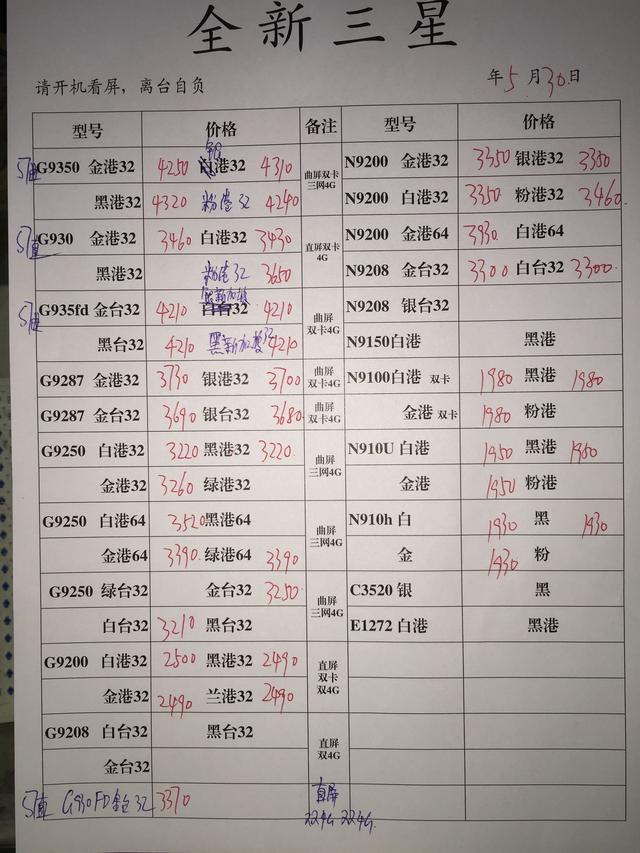 全新三星
请开机看屏，离台自负
年5月30日
型号 价格 备注 型号 价格
S7曲 G9350 金港32 4250 银港32 4310 曲屏双卡 三网4G N9200 金港32 3350 银港32 3350
黑港32 4320 粉港32 4240 N9200 白港32 3350 粉港32 3460
S7直 G930 金港32 3460 白港32 3430 直屏双卡 4G N9200 金港64 3930 白港64
黑港32 粉港32 3650 N9208 金台32 3300 白台32 3300
S7曲 G935fd 金台32 4210 4210 曲屏 双卡4G N9208 银台32
黑台32 4210 黑新加坡32 4210 N9150白港 黑港
G9287 金港32 3730 银港32 3700 曲屏 双卡4G N9100白港 双卡 1980 黑港 1980
G9287 金台32 3690 银台32 3680 曲屏 双卡4G 金港 双卡 1980 粉港
G9250 白港32 3220 黑港32 3220 曲屏 三网4G N910U 白港 1950 黑港 1950
金港32 3260 绿港32 金港 1950 粉港
G9250 白港64 3520 黑港64 曲屏 三网4G N910h 白 1930 黑 1930
金港64 3390 绿港64 3390 金 1930 粉
G9250 绿台32 金台32 3250 曲屏 三网4G C3520 银 黑
白台32 3210 黑台32 E1272 白港 黑港
G9200 白港32 2500 黑港32 2490 直屏 双卡 双4G
金港32 2490 兰港32 2490
G9208 白台32 黑台32 直屏 双4G
金台32
S7直 G930FD金台32 3370 直屏